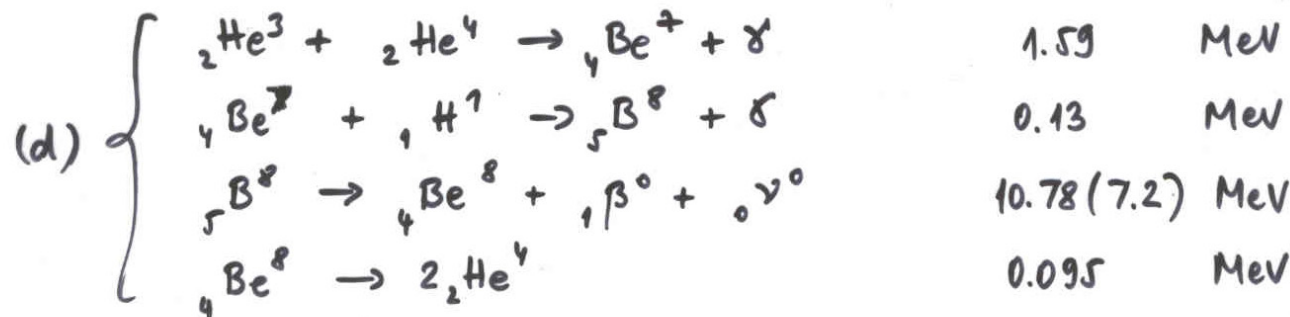 ₂He³ + ₂He⁴ → ₄Be⁷ + γ 1.59 MeV
(d) ₄Be⁷ + ₁H¹ → ₅B⁸ + γ 0.13 MeV
₅B⁸ → ₄Be⁸ + ₁β⁰ + ₀ν⁰ 10.78(7.2) MeV
₄Be⁸ → 2₂He⁴ 0.095 MeV